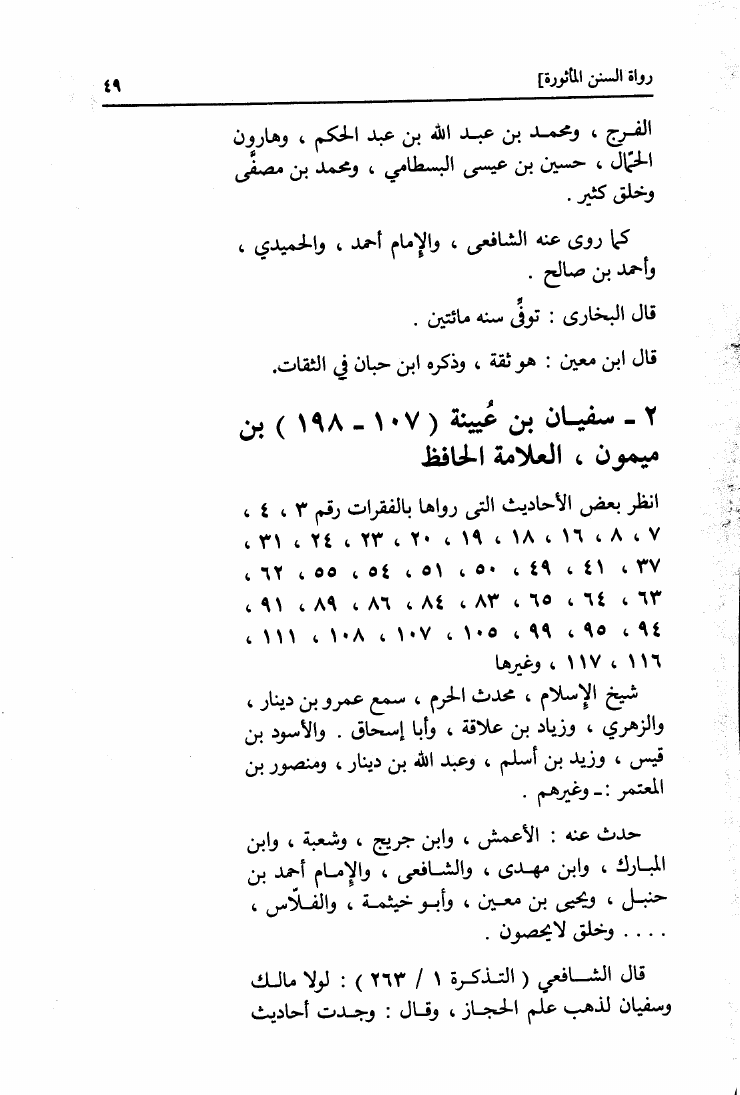 رواة السنن المأثورة]
٤٩
الفرج ، ومحمد بن عبد الله بن عبد الحكم ، وهارون
الحمّال ، حسين بن عيسى البسطامي ، ومحمد بن مصفَّى
وخلق كثير .
كما روى عنه الشافعى ، والإمام أحمد ، والحميدي ،
وأحمد بن صالح .
قال البخارى : توفِّى سنه مائتين .
قال ابن معين : هو ثقة ، وذكره ابن حبان في الثقات.
٢ - سفيان بن عُيينة ( ١٠٧ - ١٩٨ ) بن
ميمون ، العلامة الحافظ
انظر بعض الأحاديث التى رواها بالفقرات رقم ٣ ، ٤ ،
٧ ، ٨ ، ١٦ ، ١٨ ، ١٩ ، ٢٠ ، ٢٣ ، ٢٤ ، ٣١ ،
٣٧ ، ٤١ ، ٤٩ ، ٥٠ ، ٥١ ، ٥٤ ، ٥٥ ، ٦٢ ،
٦٣ ، ٦٤ ، ٦٥ ، ٨٣ ، ٨٤ ، ٨٦ ، ٨٩ ، ٩١ ،
٩٤ ، ٩٥ ، ٩٩ ، ١٠٥ ، ١٠٧ ، ١٠٨ ، ١١١ ،
١١٦ ، ١١٧ ، وغيرها
شيخ الإسلام ، محدث الحرم ، سمع عمرو بن دينار ،
والزهري ، وزياد بن علاقة ، وأبا إسحاق . والأسود بن
قيس ، وزيد بن أسلم ، وعبد الله بن دينار ، ومنصور بن
المعتمر :ـ وغيرهم .
حدث عنه : الأعمش ، وابن جريج ، وشعبة ، وابن
المبارك ، وابن مهدى ، والشافعى ، والإمام أحمد بن
حنبل ، ويحيى بن معين ، وأبو خيثمة ، والفلّاس ،
.... وخلق لايحصون .
قال الشافعي ( التذكرة ١ / ٢٦٣ ) : لولا مالك
وسفيان لذهب علم الحجاز ، وقال : وجدت أحاديث